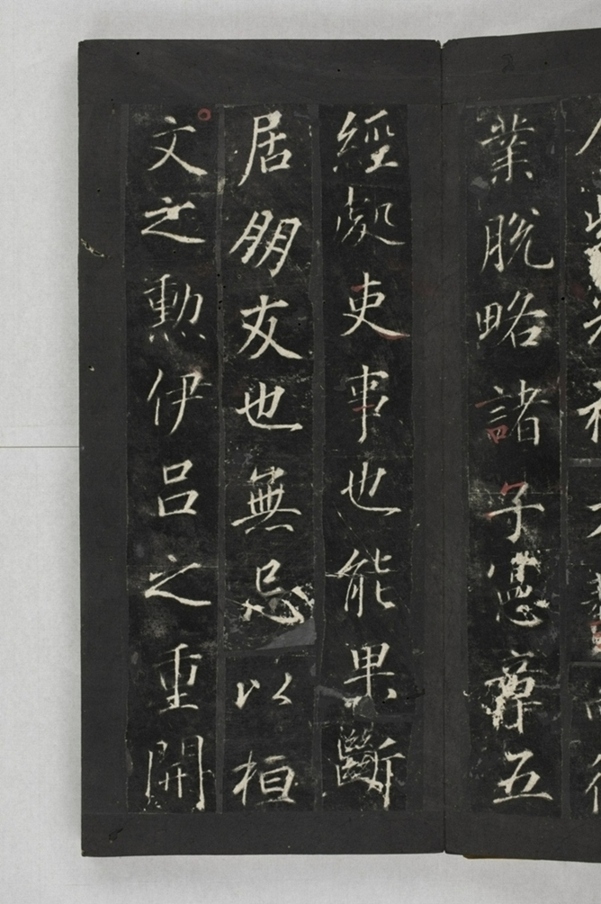 業脱略諸子憲章五
經處吏事也能果斷
居朋友也無忌以桓
文之勳伊呂之重開